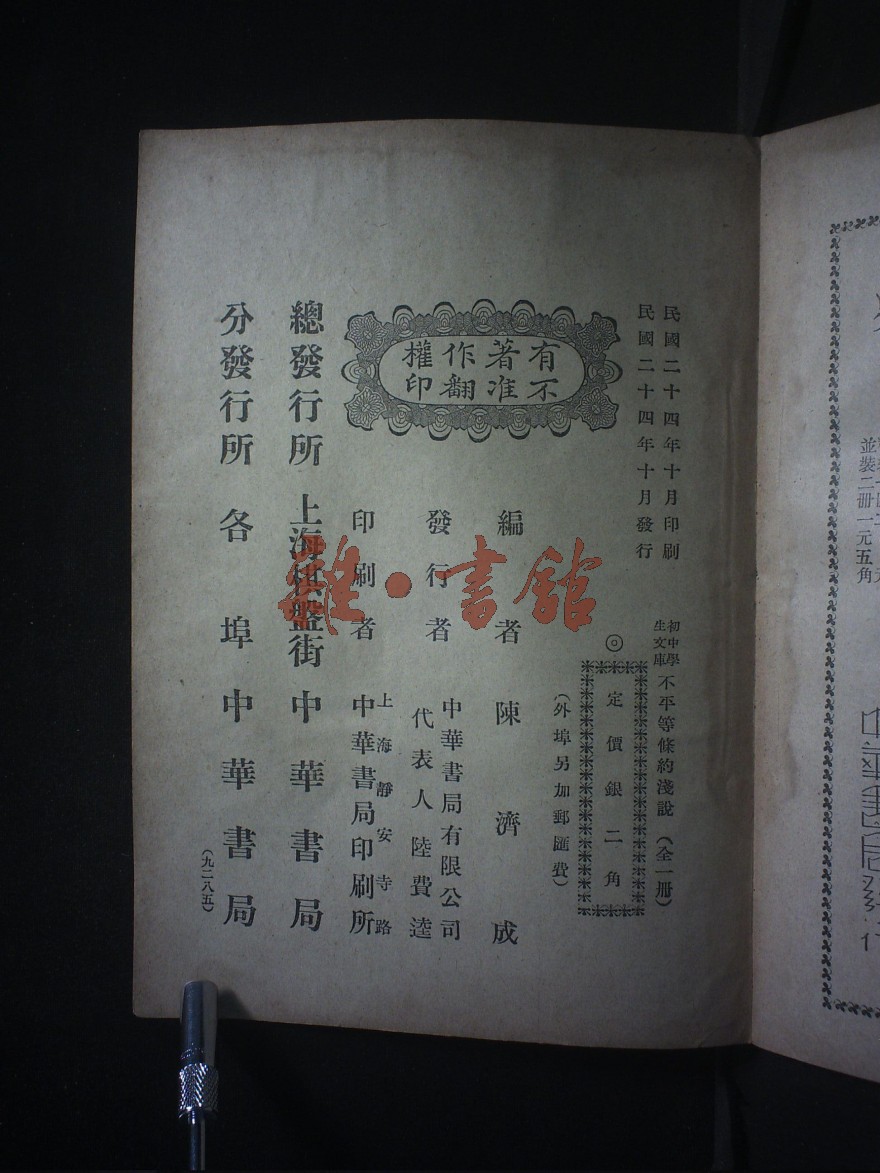 民國二十四年十月印刷
民國二十四年十月發行
初中學生文庫 不平等條約淺說（全一冊）
◎定價銀二角
（外埠另加郵匯費）
有著作權
不准翻印
編者 陳濟成
發行者 中華書局有限公司
代表人陸費逵
印刷者 上海靜安寺路
中華書局印刷所
總發行所 上海棋盤街 中華書局
分發行所 各埠中華書局
（九二八五）
雜·書館
並裝二冊一元五角